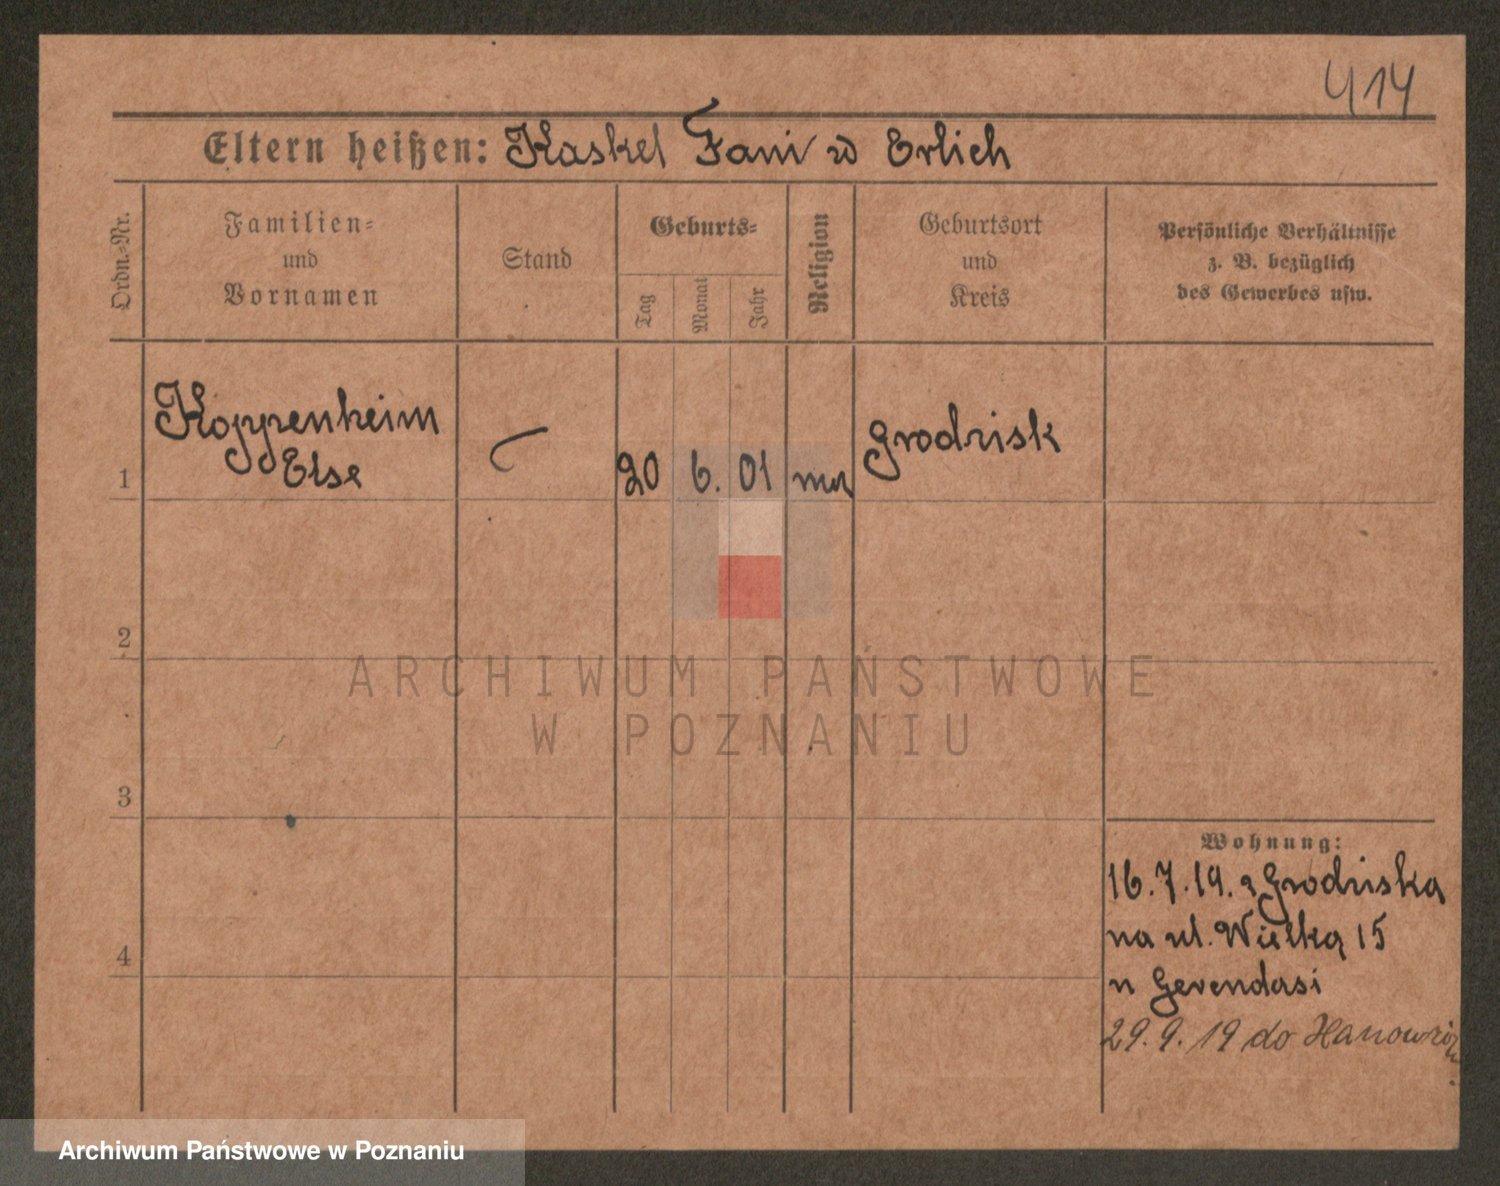 414
Eltern heißen: Kaskel Fani z d Erlich
Ordn.-Nr.
Familien-
und
Vornamen
Stand
Geburts-
Tag
Monat
Jahr
Religion
Geburtsort
und
Kreis
Persönliche Verhältnisse
z. B. bezüglich
des Gewerbes usw.
1
Koppenheim
Else
20
6.
01
Grodzisk
2
3
4
Wohnung:
16.7.19. z Grodziska
na ul. Wielką 15
u Gerendasi
29.9.19 do
ARCHIWUM PAŃSTWOWE
W POZNANIU
Archiwum Państwowe w Poznaniu